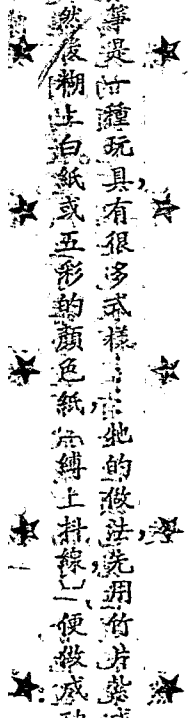 箏是一種玩具，有很多式樣……牠的做法，先用竹片紮
然後糊上白紙或五彩的顏色紙，縛上抖線，便做成